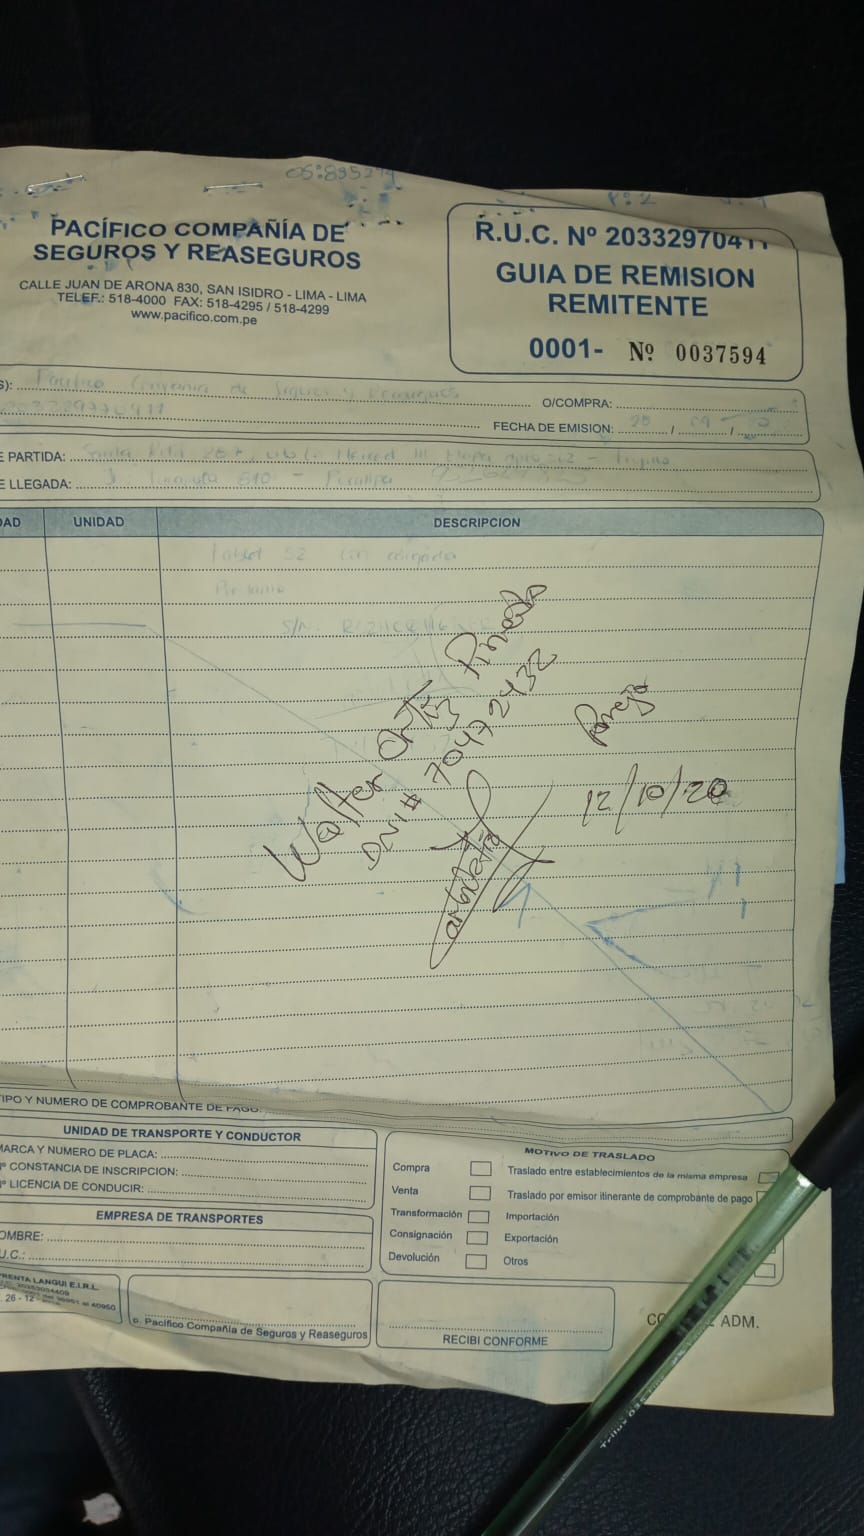 05:835294
PACÍFICO COMPAÑÍA DE
SEGUROS Y REASEGUROS
CALLE JUAN DE ARONA 830, SAN ISIDRO - LIMA - LIMA
TELEF.: 518-4000 FAX: 518-4295 / 518-4299
www.pacifico.com.pe
R.U.C. Nº 20332970411
GUIA DE REMISION
REMITENTE
0001- Nº 0037594
S): Pacifico Compañia de Seguros y Reaseguros
O/COMPRA:
20332970411
FECHA DE EMISION: / /
E PARTIDA: Santa Rita
E LLEGADA: J 810 - Pucallpa
DAD UNIDAD DESCRIPCION
Tablet S2 con cargador
S/N:
Walter Ortiz Pinedo
DNI # 70472432
Pareja
12/10/20
TIPO Y NUMERO DE COMPROBANTE DE PAGO:
UNIDAD DE TRANSPORTE Y CONDUCTOR
MARCA Y NUMERO DE PLACA:
Nº CONSTANCIA DE INSCRIPCION:
Nº LICENCIA DE CONDUCIR:
EMPRESA DE TRANSPORTES
OMBRE:
U.C.:
MOTIVO DE TRASLADO
Compra Traslado entre establecimientos de la misma empresa
Venta Traslado por emisor itinerante de comprobante de pago
Transformación Importación
Consignación Exportación
Devolución Otros
RENTA LANGUI E.I.R.L.
26 - 12 -
p. Pacífico Compañía de Seguros y Reaseguros
RECIBI CONFORME
ADM.